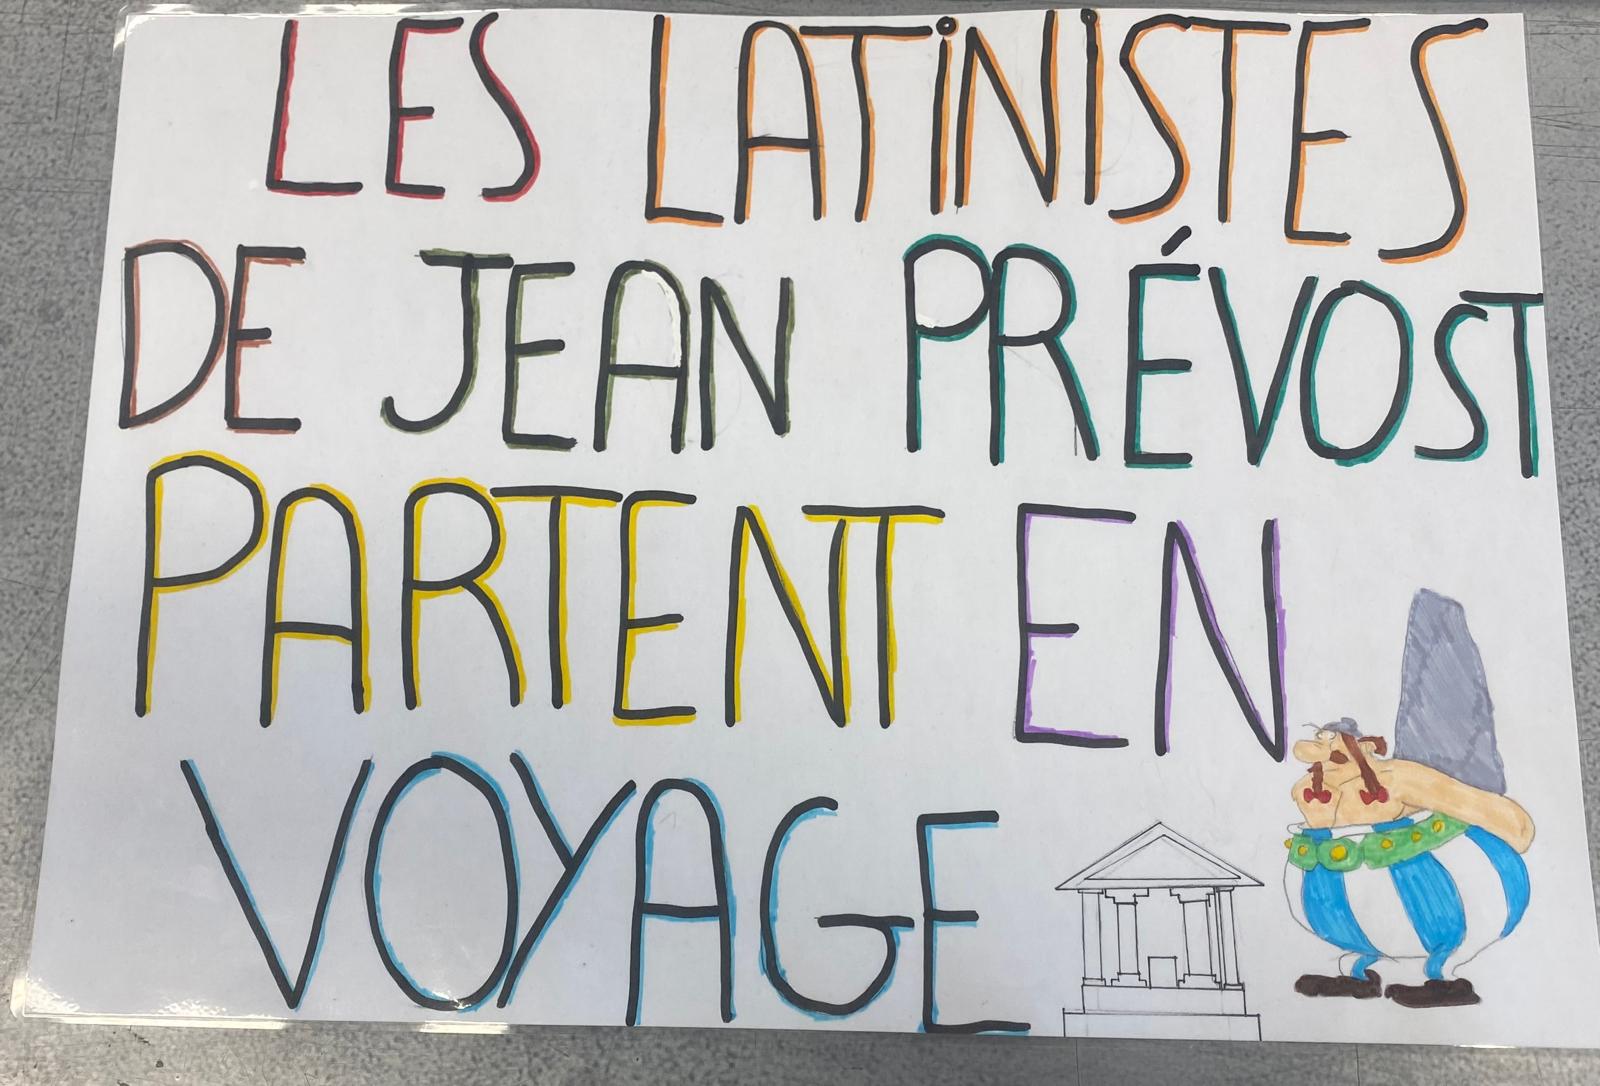 LES LATINISTES
DE JEAN PRÉVOST
PARTENT EN
VOYAGE